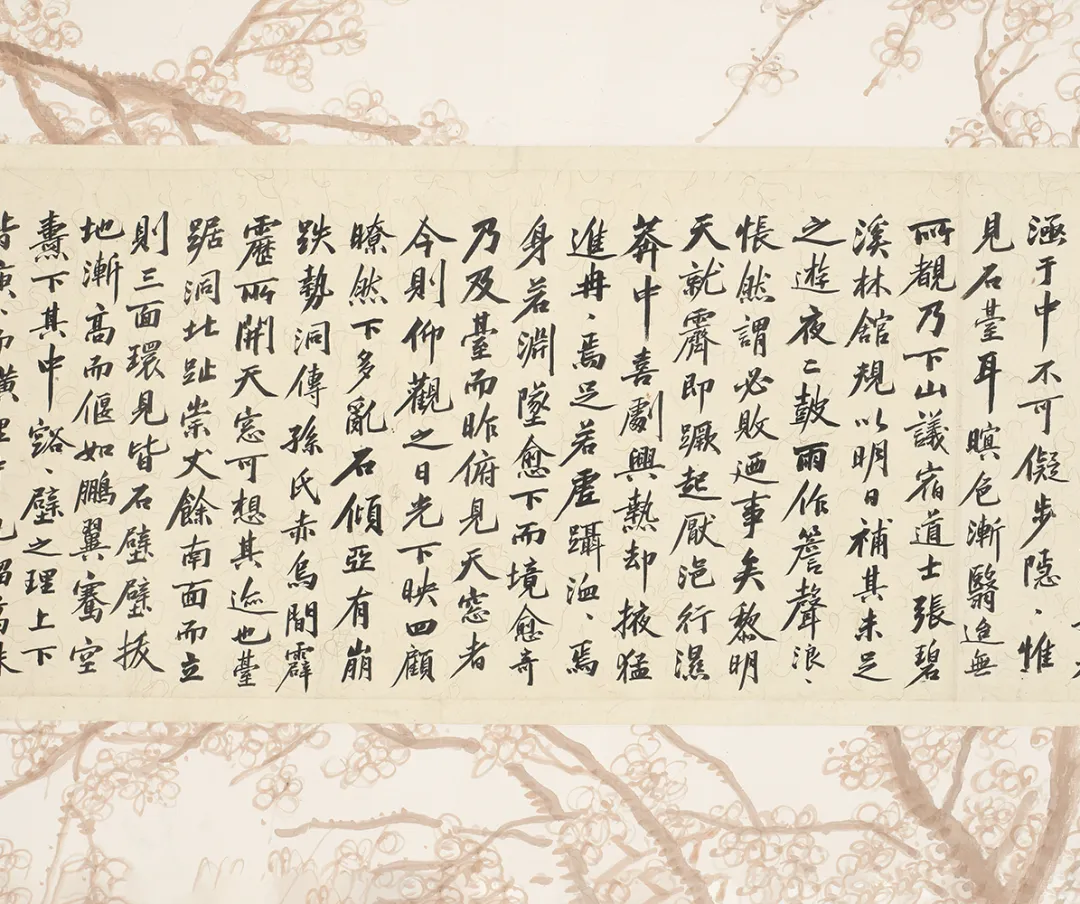 涵于中不可儗步隐、惟
見石臺耳暝色漸翳迨無
所覩乃下山議宿道士張碧
溪林館規以明日補其未足
之遊夜二鼓雨作簷聲浪、
悵然謂必敗迺事矣黎明
天就霽即蹶起厭浥行濕
莽中喜劇興熱却掖猛
進冉、焉足若虚躡洫、焉
身若淵墜愈下而境愈奇
乃及臺而昨俯見天窓者
今則仰觀之日光下映四顧
瞭然下多亂石傾亞有崩
跌勢洞傳孫氏赤烏間霹
靂所開天窓可想其迹也臺
踞洞北趾崇丈餘南面而立
則三面環見皆石壁壁拔
地漸高而偃如鵬翼騫空
燾下其中谽、壁之理上下